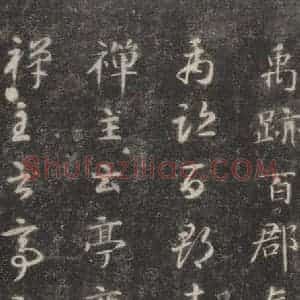 禹跡百郡
禹跡百郡
禪主云亭
禪主云亭
Shufaziliao.COM